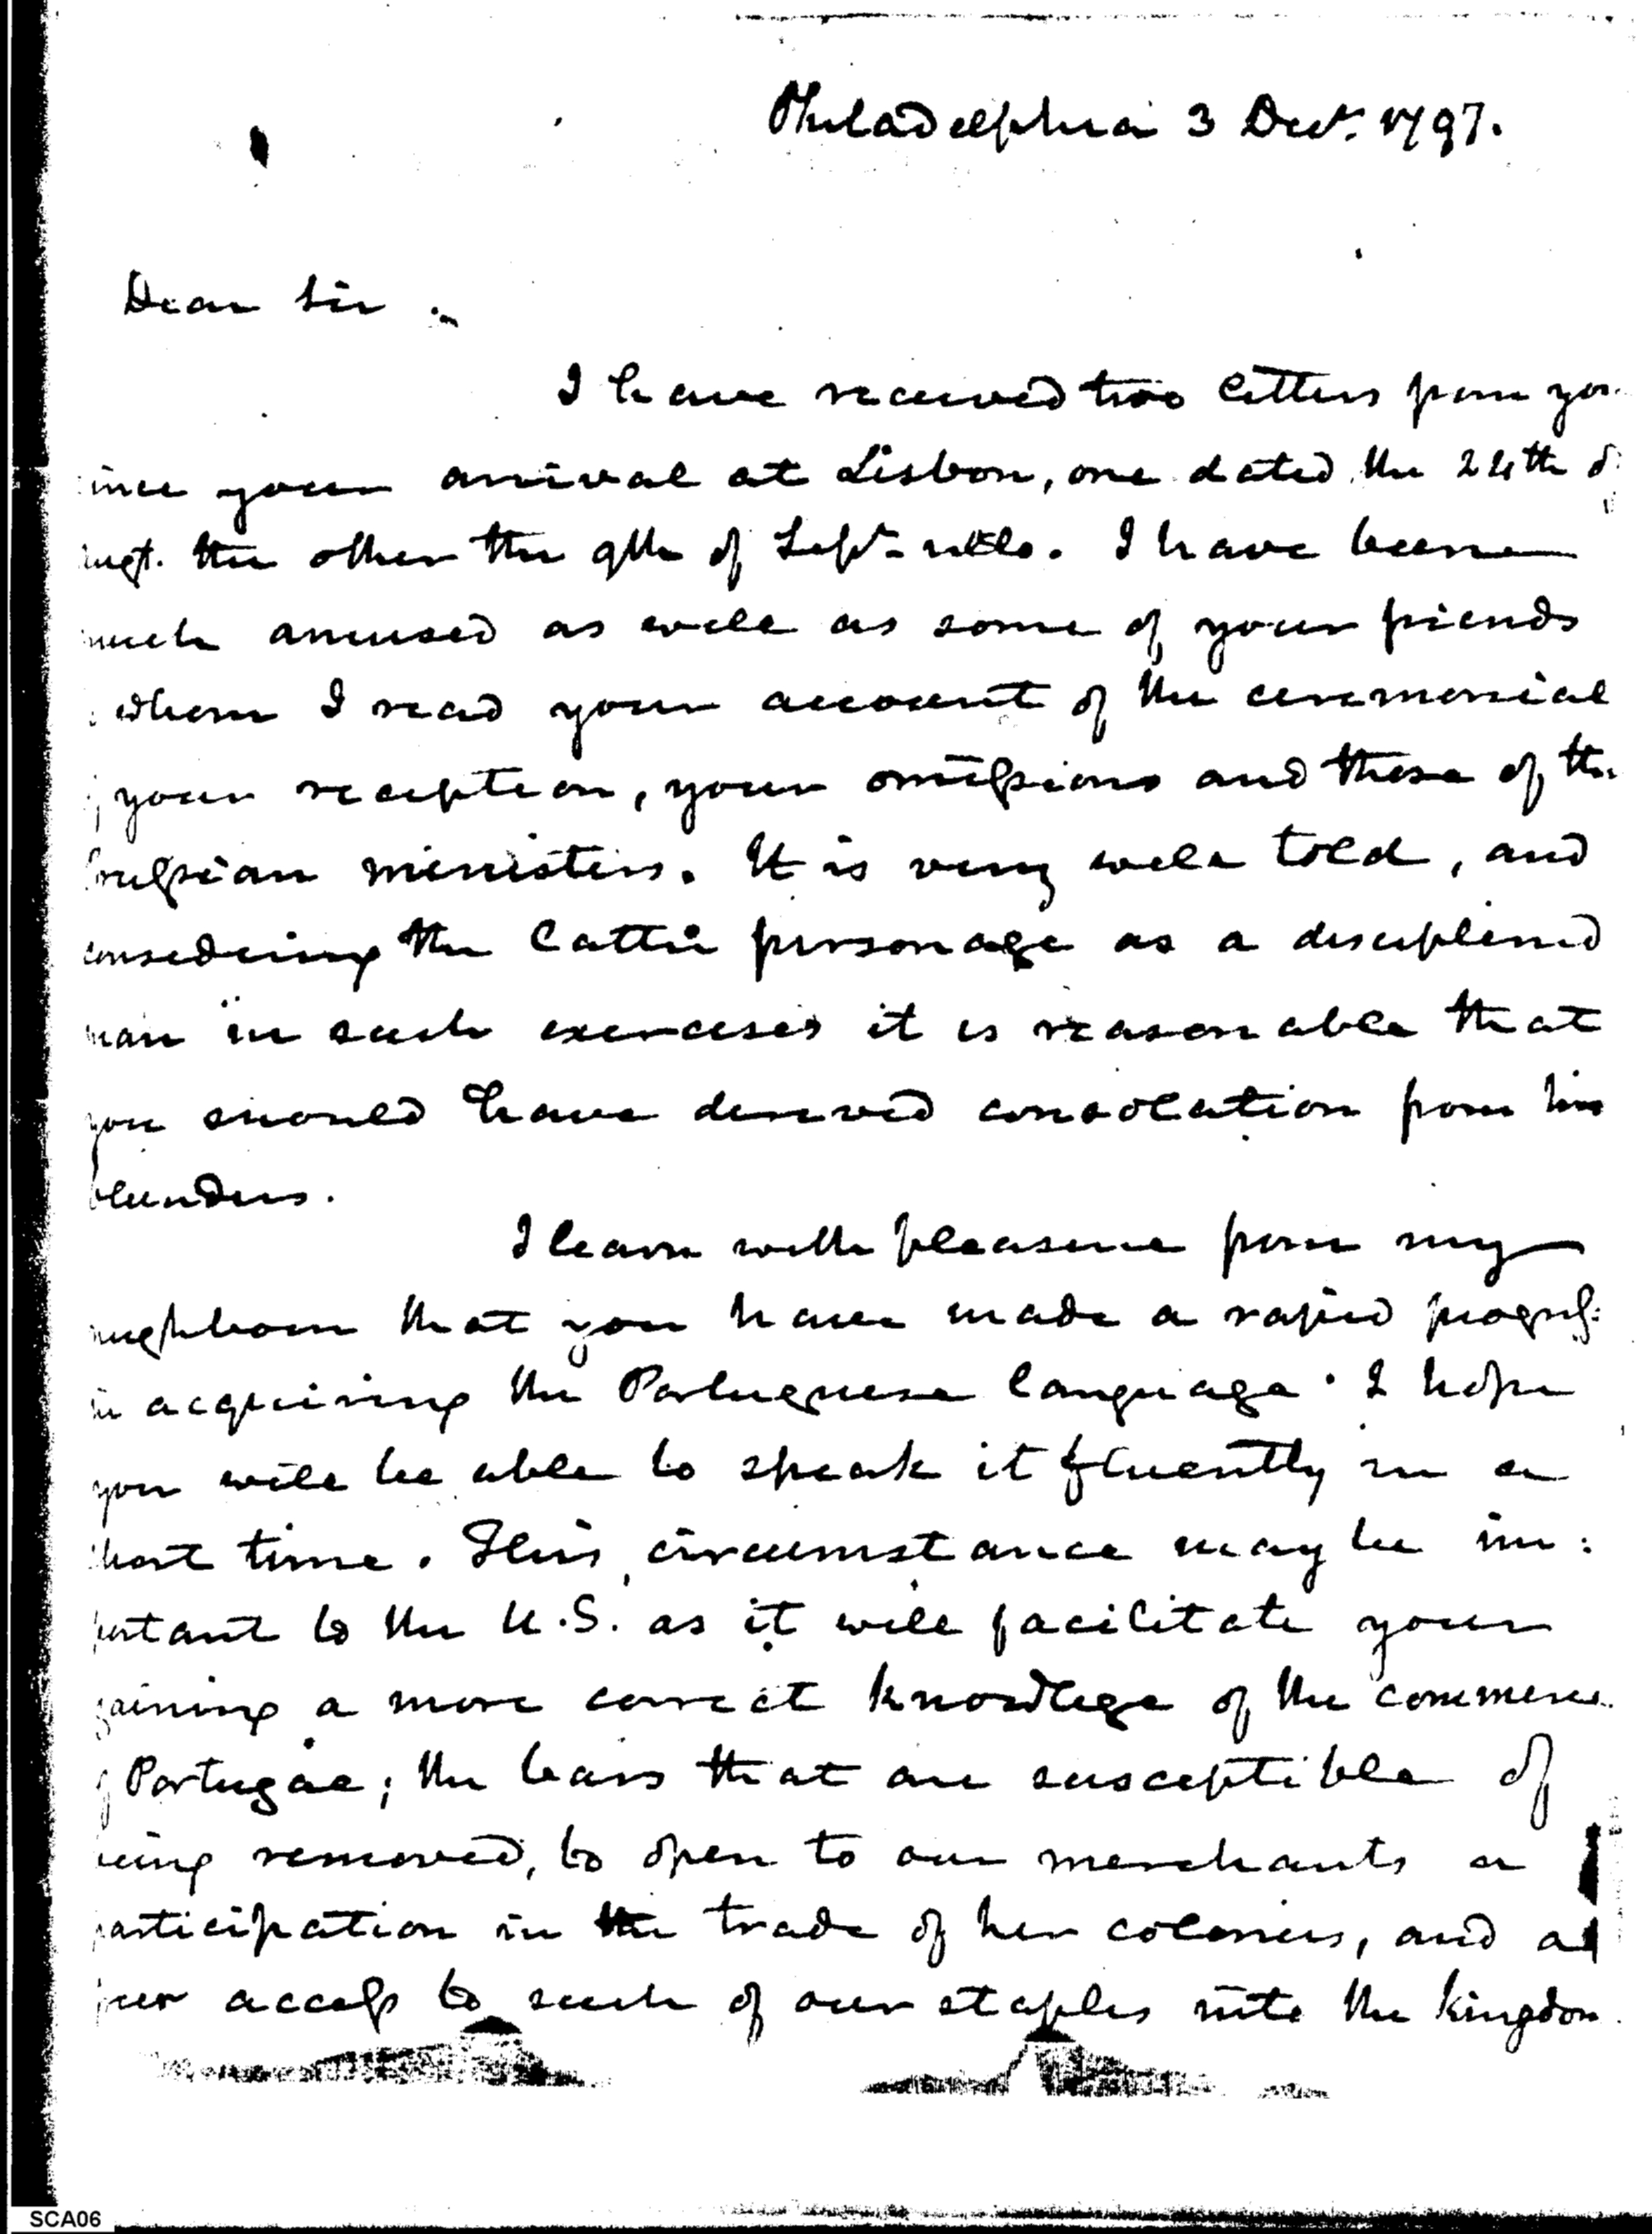 Philadelphia 3 Decr. 1797.
Dear Sir.
I have received two letters from you
ince your arrival at Lisbon, one dated the 24th of
ugt. the other the 9th of Sepr. ullo. I have been
much amused as well as some of your friends
whom I read your account of the ceremonial
your reception, your omissions and those of the
russian ministers. It is very well told, and
considering the latter personage as a disciplined
man in such exercises it is reasonable that
you should have derived consolation from his
blunders.
I learn with pleasure from my
neighbour that you have made a rapid progress
in acquiring the Portuguese language. I hope
you will be able to speak it fluently in a
short time. This circumstance may be im:
portant to the U.S. as it will facilitate your
gaining a more correct knowlege of the commerce
of Portugal; the bars that are susceptible of
being removed, to open to our merchants a
participation in the trade of her colonies, and a
freer access to such of our staples into the kingdom
SCA06